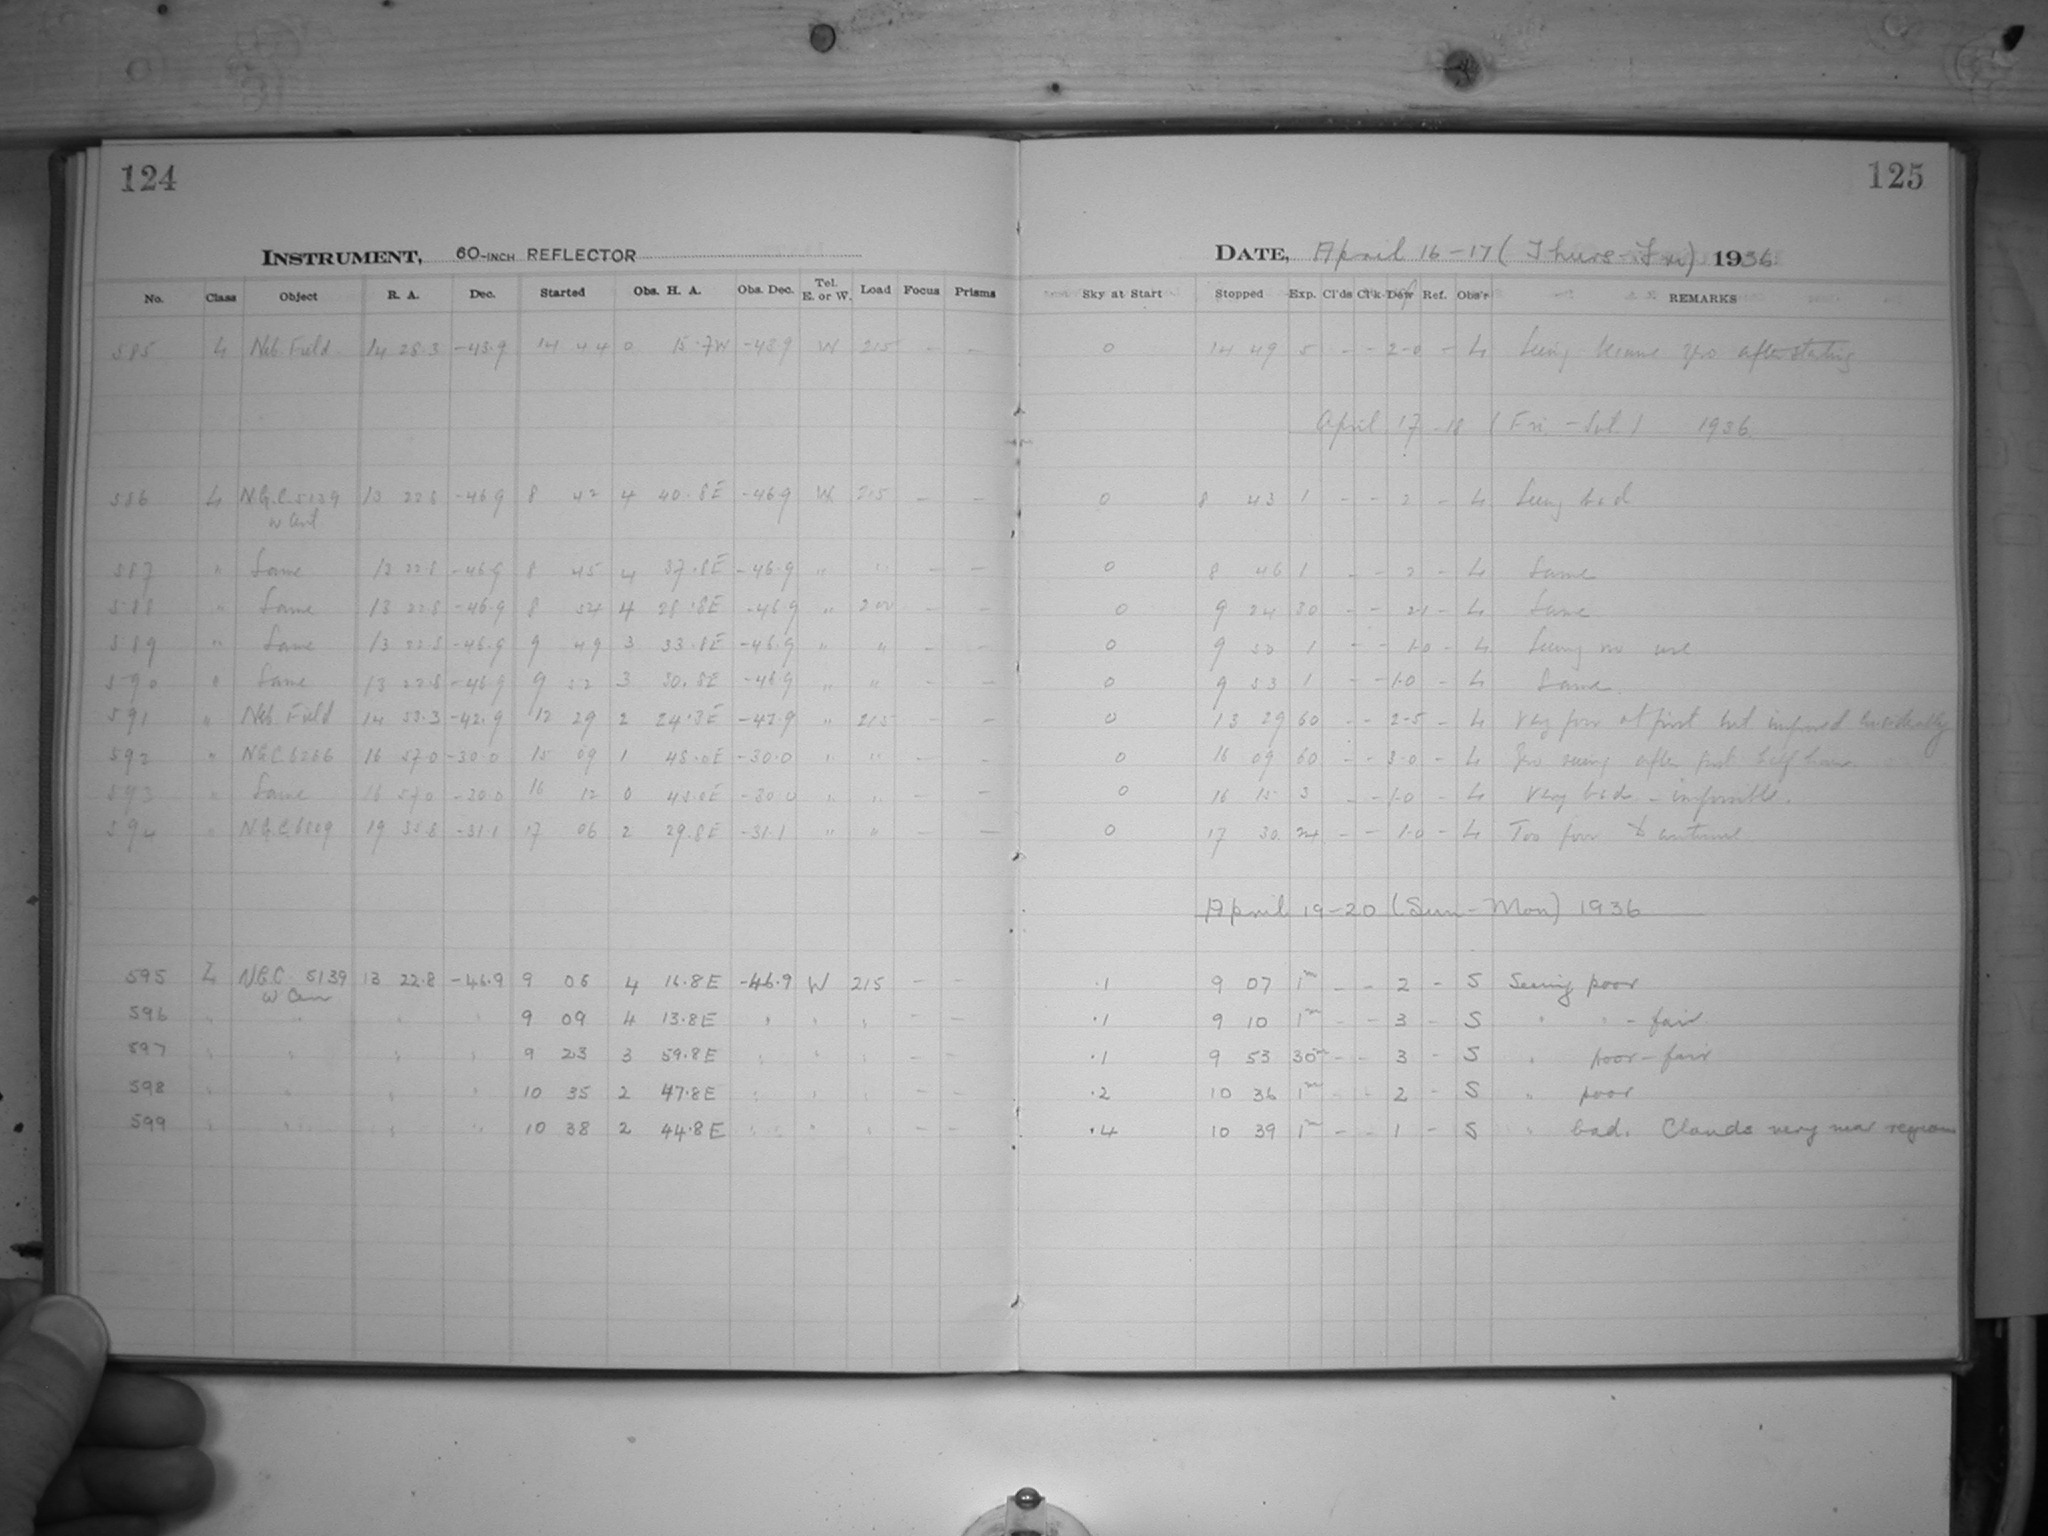 124
125
INSTRUMENT, 60-INCH REFLECTOR
DATE, April 16-17 (Thurs-Fri) 1936
No. Class Object R. A. Dec. Started Obs. H. A. Obs. Dec. Tel. E. or W. Load Focus Prisms Sky at Start Stopped Exp. Cl'ds Cl'k Dew Ref. Obs'r REMARKS
585 L Neb. Field 14 28.3 -43.9 14 44 0 15.7W -43.9 W 215 - - 0 14 49 5 - - 2-0 - L Seeing became zero after starting
April 17-18 (Fri. - Sat.) 1936
586 L N.G.C. 5139 13 22.8 -46.9 8 42 4 40.8E -46.9 W 215 - - 0 8 43 1 - - 2 - L Seeing bad
ω Cent
587 " Same 13 22.8 -46.9 8 45 4 37.8E -46.9 " " - - 0 8 46 1 - - 2 - L Same
588 " Same 13 22.8 -46.9 8 54 4 28.8E -46.9 " 200 - - 0 9 24 30 - - 2-1 - L Same
589 " Same 13 22.8 -46.9 9 49 3 33.8E -46.9 " " - - 0 9 50 1 - - 1-0 - L Seeing no use
590 " Same 13 22.8 -46.9 9 52 3 30.8E -46.9 " " - - 0 9 53 1 - - 1-0 - L Same
591 " Neb. Field 14 53.3 -42.9 12 29 2 24.3E -42.9 " 215 - - 0 13 29 60 - - 2-5 - L Very poor at first but improved considerably
592 " N.G.C. 6266 16 57.0 -30.0 15 09 1 48.0E -30.0 " " - - 0 16 09 60 - - 3-0 - L Zero seeing after first half hour
593 " Same 16 57.0 -30.0 16 12 0 45.0E -30.0 " " - - 0 16 15 3 - - 1-0 - L Very bad - impossible.
594 " N.G.C. 6809 19 35.8 -31.1 17 06 2 29.8E -31.1 " " - - 0 17 30 24 - - 1-0 - L Too poor to continue
April 19-20 (Sun-Mon) 1936
595 L N.G.C. 5139 13 22.8 -46.9 9 06 4 16.8E -46.9 W 215 - - .1 9 07 1m - - 2 - S Seeing poor
ω Cen
596 " " " " 9 09 4 13.8E " " " - - .1 9 10 1m - - 3 - S " " - fair
597 " " " " 9 23 3 59.8E " " " - - .1 9 53 30m - - 3 - S " poor - fair
598 " " " " 10 35 2 47.8E " " " - - .2 10 36 1m - - 2 - S " poor
599 " " " " 10 38 2 44.8E " " " - - .4 10 39 1m - - 1 - S " bad. Clouds very near region